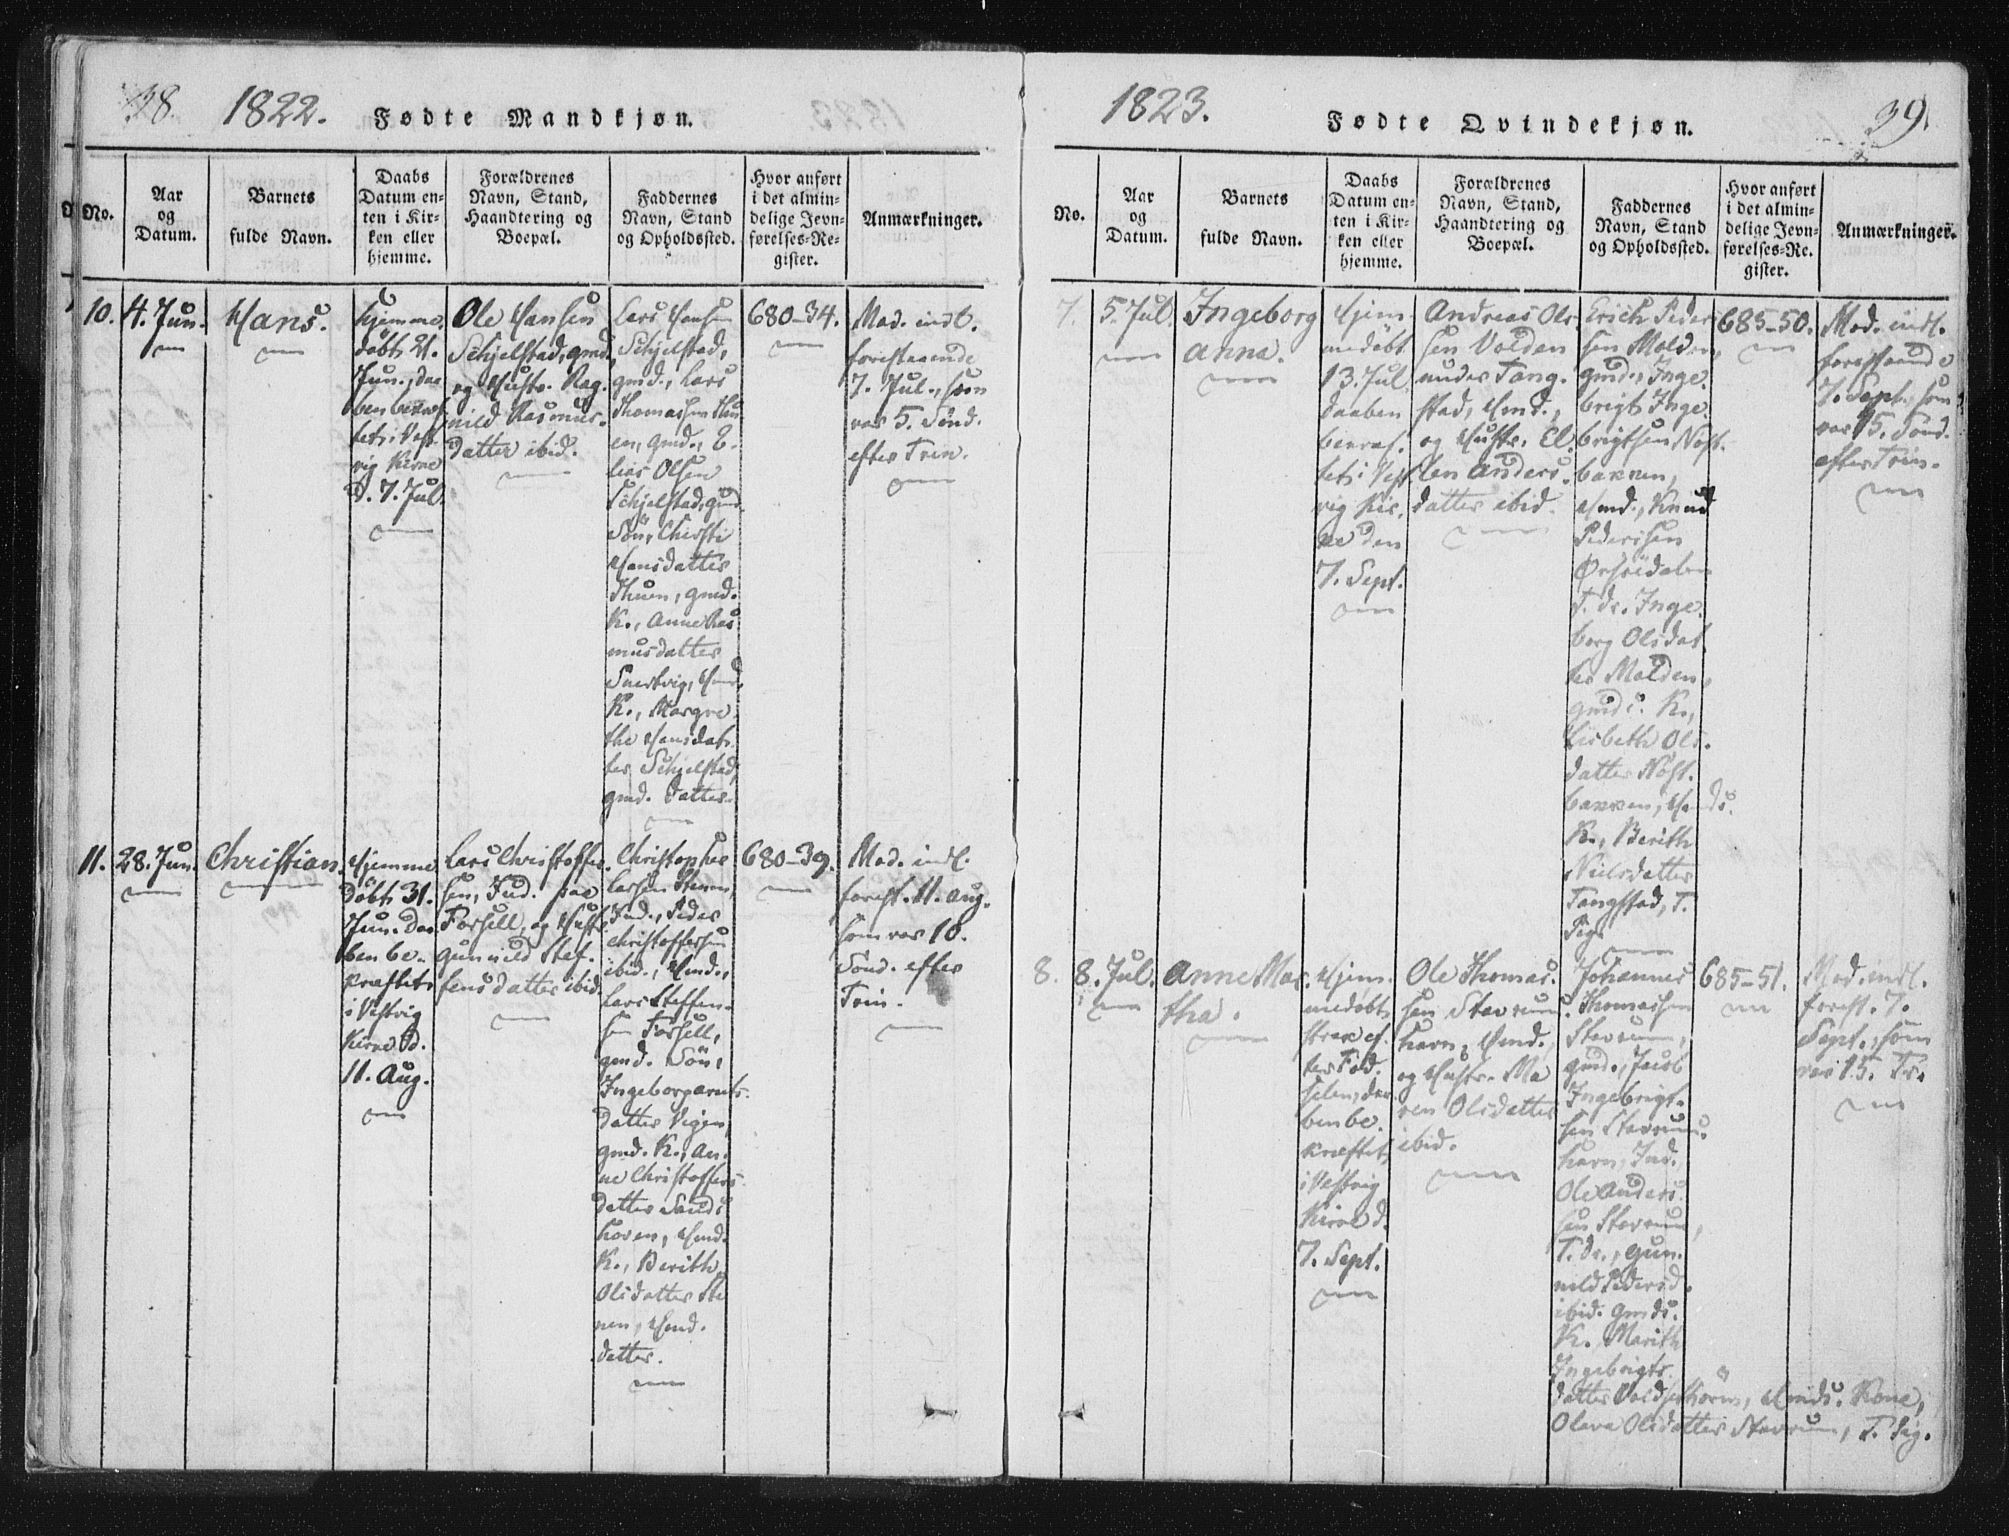 38.
1822.
Fødte Mandkjøn.
No.
Aar
og
Datum.
Barnets
fulde Navn.
Daabs
Datum en-
ten i Kir-
ken eller
hjemme.
Forældrenes
Navn, Stand,
Haandtering og
Boepæl.
Faddernes
Navn, Stand
og Opholdssted.
Hvor anført
i det almin-
delige Jevn-
førelses-Re-
gister.
Anmærkninger.
10.
4. Jun.
Hans.
Hjemme-
döbt 21.
Jun., daa-
ben bekraf-
tet i Vest-
vig Kirke
d. 7. Jul.
Ole Hansen
Schjelstad, gmd.,
og Hustr. Rag-
nild Rasmus-
datter ibid.
Lars Hansen
Schjelstad,
gmd., Lars
Thomassen Thu-
en, gmd., E-
lias Olsen
Schjelstad, gmd.
Sön, Chirsti
Hansdatter
Thuen, gmd.
K., Anne Ras-
musdatter
Hmd.
K., Margre-
the Hansdat-
ter Schjelstad,
gmd. datter.
680-34.
Mod. indl.
forestaaende
7. Jul., som
var 5. Sönd.
efter Trin.
11.
28. Jun.
Christian.
Hjemme-
döbt 31.
Jun. daa-
ben be-
kræftet
i Vestvig
Kirke d.
11. Aug.
Lars Christoffer-
sen, Ind. paa
Forsell, og Hustr.
Gunnild Stef-
fensdatter ibid.
Christopher
Larsen Stenen,
Ind., Peder
Christoffersen
ibid., Hmd.,
Lars Steffen-
sen Forsell,
gmd. Sön,
Ingeborg Arnts-
datter Vigen,
gmd. K., An-
ne Christoffers-
datter Sands-
hoven, Hmd.
K., Berith
Olsdatter Ste-
nen, Hmd.
datter.
680-39.
Mod. indl.
forest. 11. Aug.
som var 10.
Sönd. efter
Trin.
1823.
Fødte Qvindekjøn.
39.
No.
Aar
og
Datum.
Barnets
fulde Navn.
Daabs
Datum en-
ten i Kir-
ken eller
hjemme.
Forældrenes
Navn, Stand,
Haandtering og
Boepæl.
Faddernes
Navn, Stand
og Opholdssted.
Hvor anført
i det almin-
delige Jevn-
førelses-Re-
gister.
Anmærkninger.
7.
5. Jul.
Ingeborg
Anna.
Hjem-
medöbt
13. Jul.
Daaben
bekraf-
tet i Vest-
vig Kir-
ke den
7. Sept.
Andreas Ols-
sen Volden
under Tang-
stad, Hmd.,
og Hustr. El-
len Anders-
datter ibid.
Erich Peder-
sen Molden,
gmd., Inge-
brigt Inge-
brigtsen Nöst-
bakken,
Hmd., Knud
Pedersen
T. dr. Inge-
borg Olsdat-
ter Molden,
gmds. K.,
Lisbeth Ols-
datter Nöst-
bakken, Hmds.
K., Berith
Nielsdatter
Tangstad, T.
Pig.
685-50.
Mod. indl.
forestaaende
7. Sept. som
var 15. Sönd.
efter Trin.
8.
8. Jul.
Anne Mar-
tha.
Hjem-
medöbt
strax ef-
ter Föd-
selen, daa-
ben be-
kræftet
i Vestvig
Kirke d.
7. Sept.
Ole Thomas-
sen Stavrum-
havn, Hmd.,
og Hustr. Ma-
ren Olsdatter
ibid.
Johannes
Thomassen
Stavrum,
gmd., Jacob
Ingebrigt-
sen Stavrum-
havn, Ind.,
Ole Anders-
sen Stavrum,
T. dr., Gun-
nild Pedersd.
ibid. gmds.
K. Marith
Ingebrigts-
datter Hmds. Kone,
Olava Olsdatter Stavrum, T. Pig.
685-51.
Mod. indl.
forest. 7.
Sept., som
var 15. Tr.